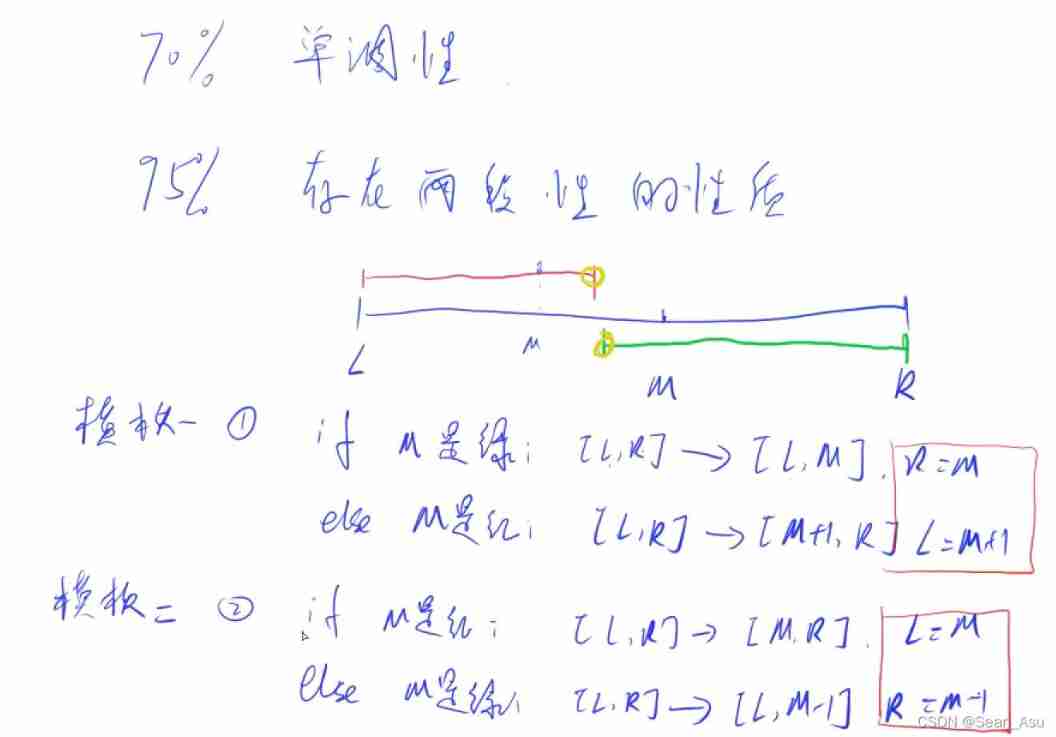 70% 单调性
95% 存在两段性的性质
M
L M R
模板一 ① if M是绿; [L,R] → [L,M]. R=M
else M是红; [L,R] → [M+1,R] L=M+1
模板二 ② if M是红; [L,R] → [M,R]. L=M
else M是绿; [L,R] → [L,M-1] R=M-1
CSDN @Sean_Asu